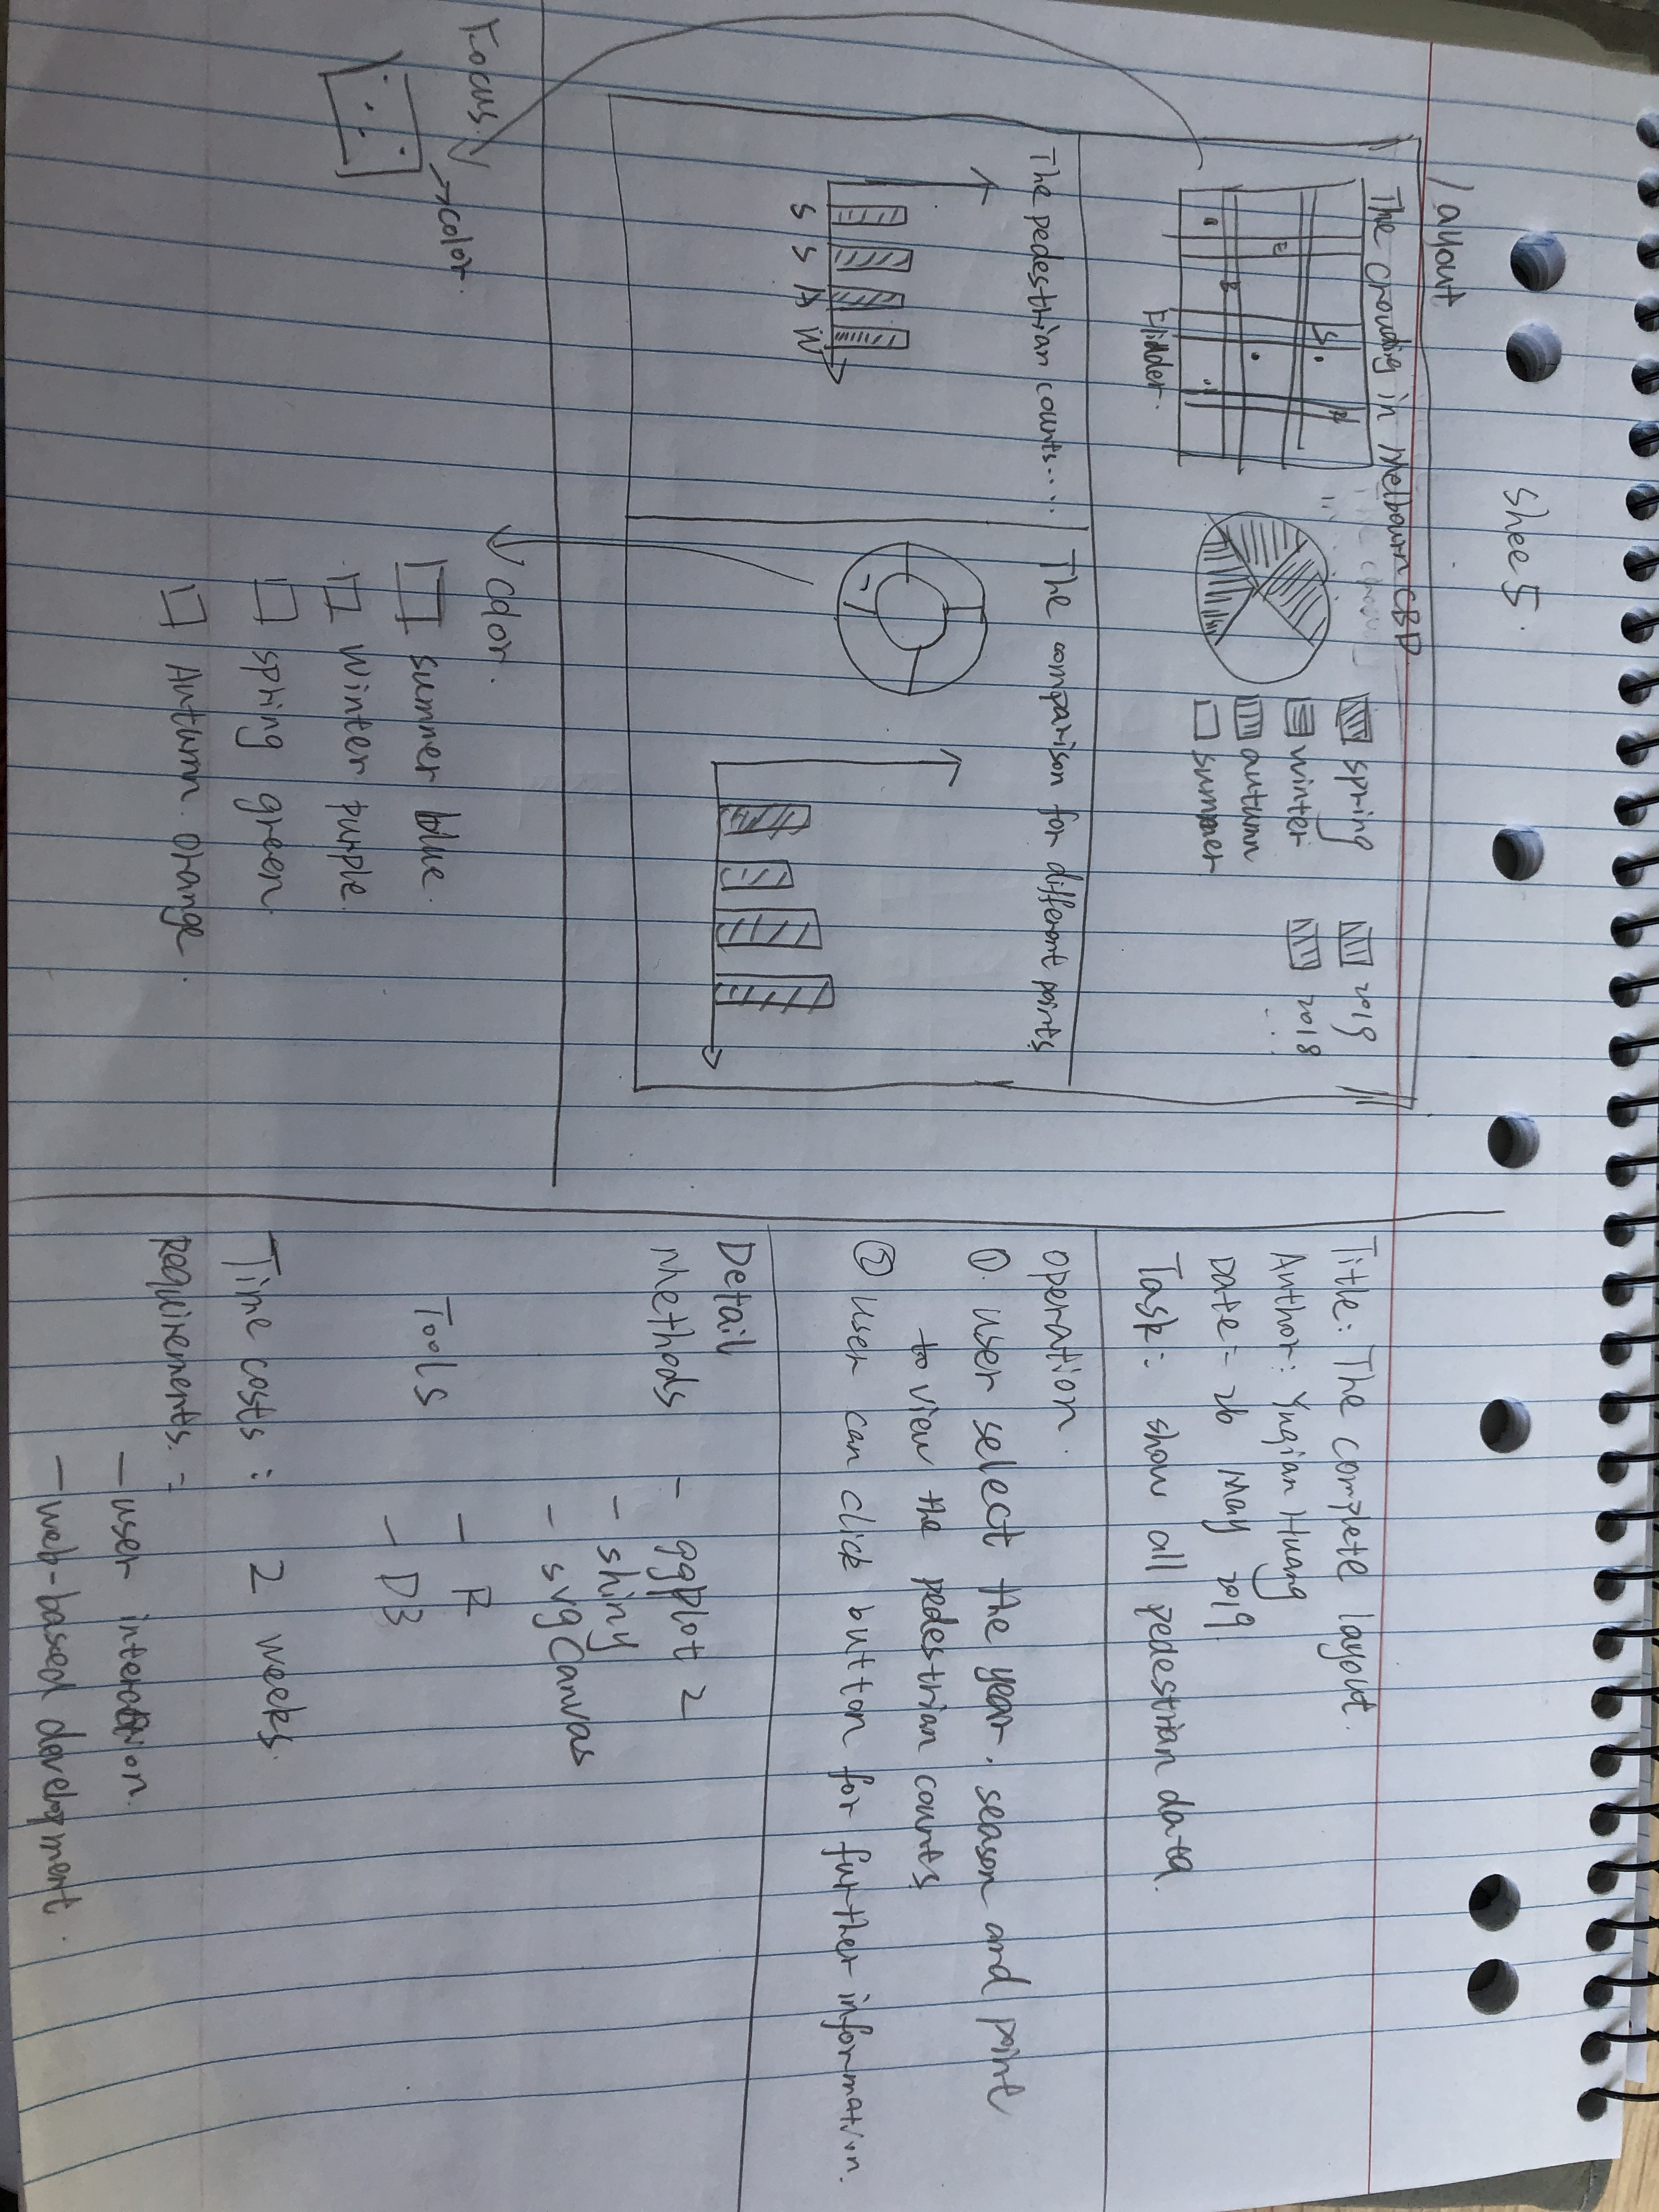 Sheet 5.
layout
The crowding in Melbourn CBD
Flidder.
spring
winter
autumn
summer
2019
2018
...
The pedestrian counts....
S S A W
The comparison for different points
Focus.
color.
color.
summer blue
winter purple.
spring green.
Autumn orange.
Title: The complete layout.
Author: Yuqian Huang
Date: 26 May 2019
Task: show all pedestrian data.
operation.
①. user select the year, season and point
to view the pedestrian counts
② user can click button for further information.
Detail
Methods - ggplot 2
- shiny
- svg Canvas
Tools - R
- D3
Time costs: 2 weeks.
Requirements:
- user interaction.
- web-based development.